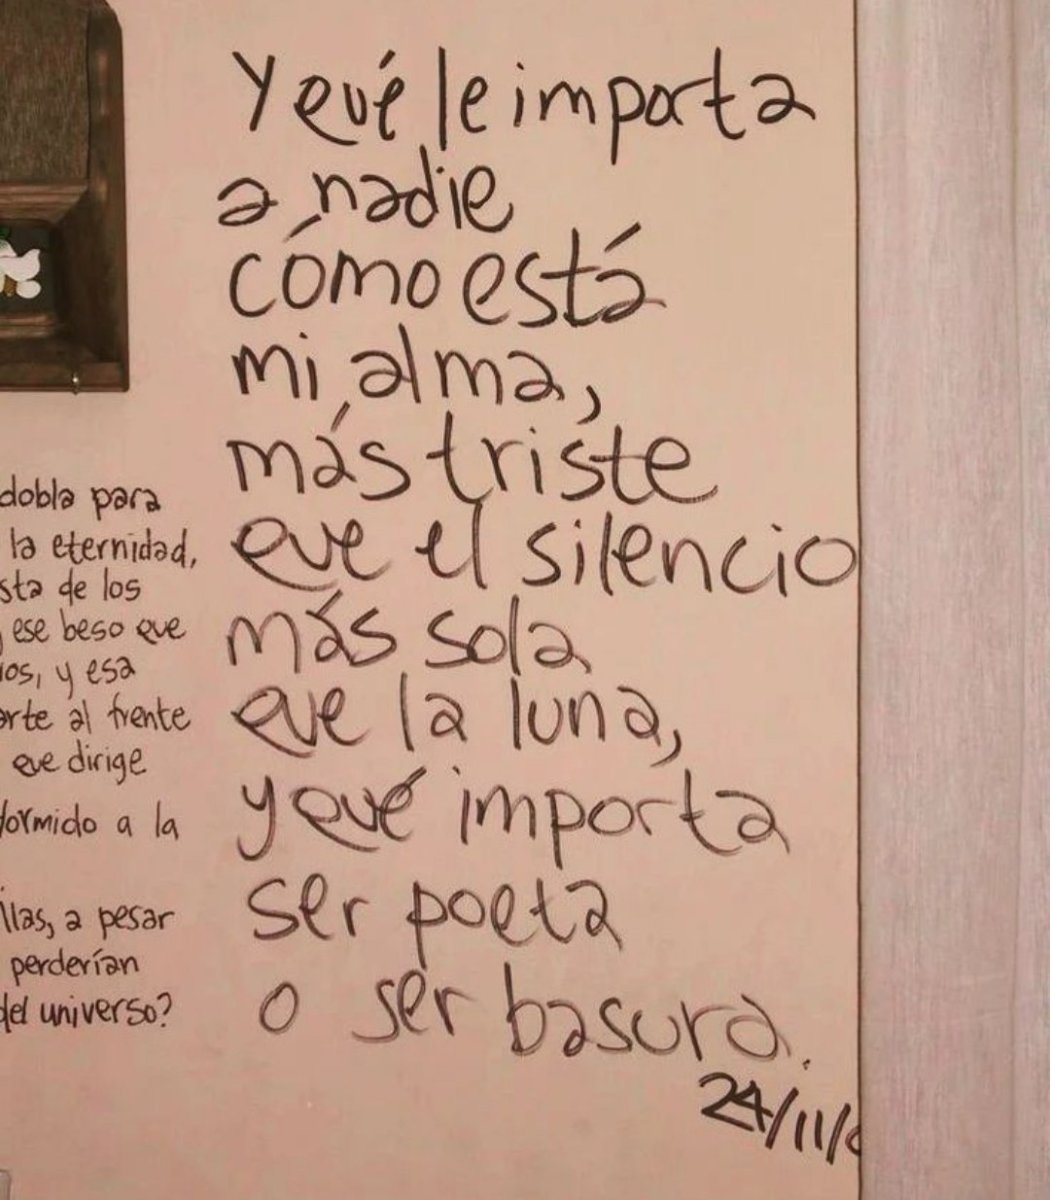 Y qué le importa
a nadie
cómo está
mi alma,
más triste
que el silencio
más sola
que la luna,
y qué importa
ser poeta
o ser basura.
24/11/
dobla para
la eternidad,
sta de los
ese beso que
ios, y esa
arte al frente
que dirige
dormido a la
llas, a pesar
perderían
del universo?